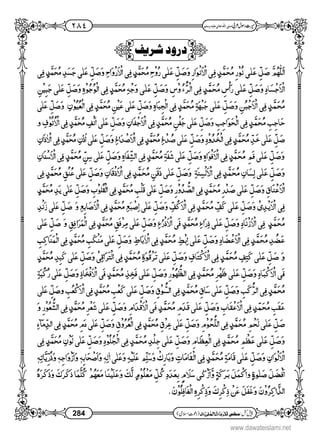 ٢٨٤
درود شریف
اَللّٰهُمَّ صَلِّ عَلٰى نُوْرِ مُحَمَّدٍ فِى الْاَنْوَارِ وَصَلِّ عَلٰى رُوْحِ مُحَمَّدٍ فِى الْاَرْوَاحِ وَصَلِّ عَلٰى جَسَدِ مُحَمَّدٍ فِى
الْاَجْسَادِ وَصَلِّ عَلٰى رَأْسِ مُحَمَّدٍ فِى الرُّءُوْسِ وَصَلِّ عَلٰى وَجْهِ مُحَمَّدٍ فِى الْوُجُوْهِ وَصَلِّ عَلٰى جَبِيْنِ
مُحَمَّدٍ فِى الْجُبُنِ وَصَلِّ عَلٰى جَبْهَةِ مُحَمَّدٍ فِى الْجِبَاهِ وَصَلِّ عَلٰى عَيْنِ مُحَمَّدٍ فِى الْعُيُوْنِ وَصَلِّ عَلٰى
حَاجِبِ مُحَمَّدٍ فِى الْحَوَاجِبِ وَصَلِّ عَلٰى جَفْنِ مُحَمَّدٍ فِى الْاَجْفَانِ وَصَلِّ عَلٰى اَنْفِ مُحَمَّدٍ فِى الْاُنُوْفِ وَ
صَلِّ عَلٰى خَدِّ مُحَمَّدٍ فِى الْخُدُوْدِ وَصَلِّ عَلٰى صُدْغِ مُحَمَّدٍ فِى الْاَصْدَاغِ وَصَلِّ عَلٰى اُذُنِ مُحَمَّدٍ فِى الْاٰذَانِ
وَصَلِّ عَلٰى فَمِ مُحَمَّدٍ فِى الْاَفْوَاهِ وَصَلِّ عَلٰى شَفَةِ مُحَمَّدٍ فِى الشِّفَاهِ وَصَلِّ عَلٰى سِنِّ مُحَمَّدٍ فِى الْاَسْنَانِ
وَصَلِّ عَلٰى لِسَانِ مُحَمَّدٍ فِى الْاَلْسِنَةِ وَصَلِّ عَلٰى ذَقَنِ مُحَمَّدٍ فِى الْاَذْقَانِ وَصَلِّ عَلٰى عُنُقِ مُحَمَّدٍ فِى
الْاَعْنَاقِ وَصَلِّ عَلٰى صَدْرِ مُحَمَّدٍ فِى الصُّدُوْرِ وَصَلِّ عَلٰى قَلْبِ مُحَمَّدٍ فِى الْقُلُوْبِ وَصَلِّ عَلٰى يَدِ مُحَمَّدٍ
فِى الْاَيْدِىْ وَصَلِّ عَلٰى كَفِّ مُحَمَّدٍ فِى الْاَكُفِّ وَصَلِّ عَلٰى اِصْبَعِ مُحَمَّدٍ فِى الْاَصَابِعِ وَ صَلِّ عَلٰى زَنْدِ
مُحَمَّدٍ فِى الْاَزْنَادِ وَصَلِّ عَلٰى ذِرَاعِ مُحَمَّدٍ فِى الْاَذْرُعِ وَصَلِّ عَلٰى مِرْفَقِ مُحَمَّدٍ فِى الْمَرَافِقِ وَ صَلِّ عَلٰى
عَضُدِ مُحَمَّدٍ فِى الْاَعْضَادِ وَصَلِّ عَلٰى اِبِطِ مُحَمَّدٍ فِى الْاٰبَاطِ وَصَلِّ عَلٰى مَنْكِبِ مُحَمَّدٍ فِى الْمَنَاكِبِ
وَ صَلِّ عَلٰى كَتِفِ مُحَمَّدٍ فِى الْاَكْتَافِ وَصَلِّ عَلٰى تَرْقُوَةِ مُحَمَّدٍ فِى التَّرَاقِىْ وَصَلِّ عَلٰى كَبِدِ مُحَمَّدٍ
فِى الْاَكْبَادِ وَصَلِّ عَلٰى ظَهْرِ مُحَمَّدٍ فِى الظُّهُوْرِ وَصَلِّ عَلٰى فَخِذِ مُحَمَّدٍ فِى الْاَفْخَاذِ وَصَلِّ عَلٰى رُكْبَةِ
مُحَمَّدٍ فِى الرُّكَبِ وَصَلِّ عَلٰى سَاقِ مُحَمَّدٍ فِى السُّوْقِ وَصَلِّ عَلٰى كَعْبِ مُحَمَّدٍ فِى الْكُعُوْبِ وَصَلِّ عَلٰى
عَقِبِ مُحَمَّدٍ فِى الْاَعْقَابِ وَصَلِّ عَلٰى قَدَمِ مُحَمَّدٍ فِى الْاَقْدَامِ وَصَلِّ عَلٰى شَعْرِ مُحَمَّدٍ فِى الشُّعُوْرِ وَ
صَلِّ عَلٰى لَحْمِ مُحَمَّدٍ فِى اللُّحُوْمِ وَصَلِّ عَلٰى عِرْقِ مُحَمَّدٍ فِى الْعُرُوْقِ وَصَلِّ عَلٰى دَمِ مُحَمَّدٍ فِى الدِّمَآءِ
وَصَلِّ عَلٰى عَظْمِ مُحَمَّدٍ فِى الْعِظَامِ وَصَلِّ عَلٰى جِلْدِ مُحَمَّدٍ فِى الْجُلُوْدِ وَصَلِّ عَلٰى لَوْنِ مُحَمَّدٍ فِى
الْاَلْوَانِ وَصَلِّ عَلٰى قَامَةِ مُحَمَّدٍ فِى الْقَامَاتِ وَبَارِكْ وَسَلِّمْ عَلَيْهِ وَعَلٰى اٰلِهٖ وَاَصْحَابِهٖ وَاَزْوَاجِهٖ وَذُرِّيَّاتِهٖ
اَفْضَلَ صَلٰوةٍ وَاَكْمَلَ بَرَكَةٍ وَاَزْكٰى سَلَامٍ بِعَدَدِ كُلِّ مَعْلُوْمٍ لَّكَ وَعَلَيْنَا مَعَهُمْ كُلَّمَا ذَكَرَكَ وَذَكَرَهُ
الذَّاكِرُوْنَ وَغَفَلَ عَنْ ذِكْرِكَ وَذِكْرِهِ الْغَافِلُوْنَ.
284
www.dawateislami.net